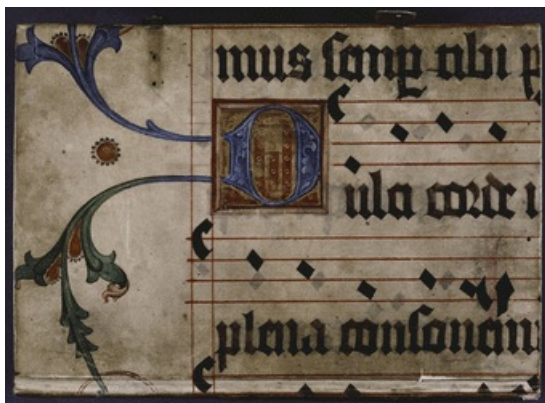 mus ſemꝑ tibi p
Dulci corde i
plena conſonem